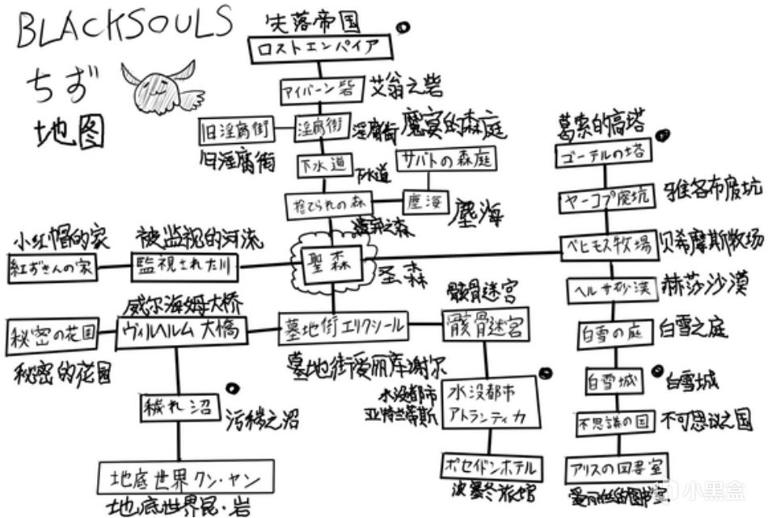 BLACKSOULS
ちず
地图
失落帝国
ロストエンパイア
アイバーン砦
艾翁之砦
旧淫腐街
淫腐街
淫腐街
魔宴的森庭
旧淫腐街
下水道
下水道
サバトの森庭
捨てられの森
塵海
塵海
遗弃之森
葛索的高塔
ゴーテルの塔
ヤーコプ廃坑
雅各布废坑
小红帽的家
被监视的河流
紅ずきんの家
監視された川
聖森
圣森
ベヒモス牧場
贝希摩斯牧场
ヘルサ砂漠
赫莎沙漠
威尔海姆大桥
骸骨迷宮
秘密の花园
ヴィルヘルム大橋
墓地街エリクシール
骸骨迷宮
白雪の庭
白雪之庭
秘密的花园
墓地街爱丽库谢尔
水没都市
亚特兰蒂斯
水没都市
アトランティカ
白雪城
白雪城
穢れ沼
污秽之沼
不思議の国
不可思议之国
地底世界クン・ヤン
地底世界昆·岩
ポセイドンホテル
波塞冬旅馆
アリスの図書室
爱丽丝图书室
小黑盒